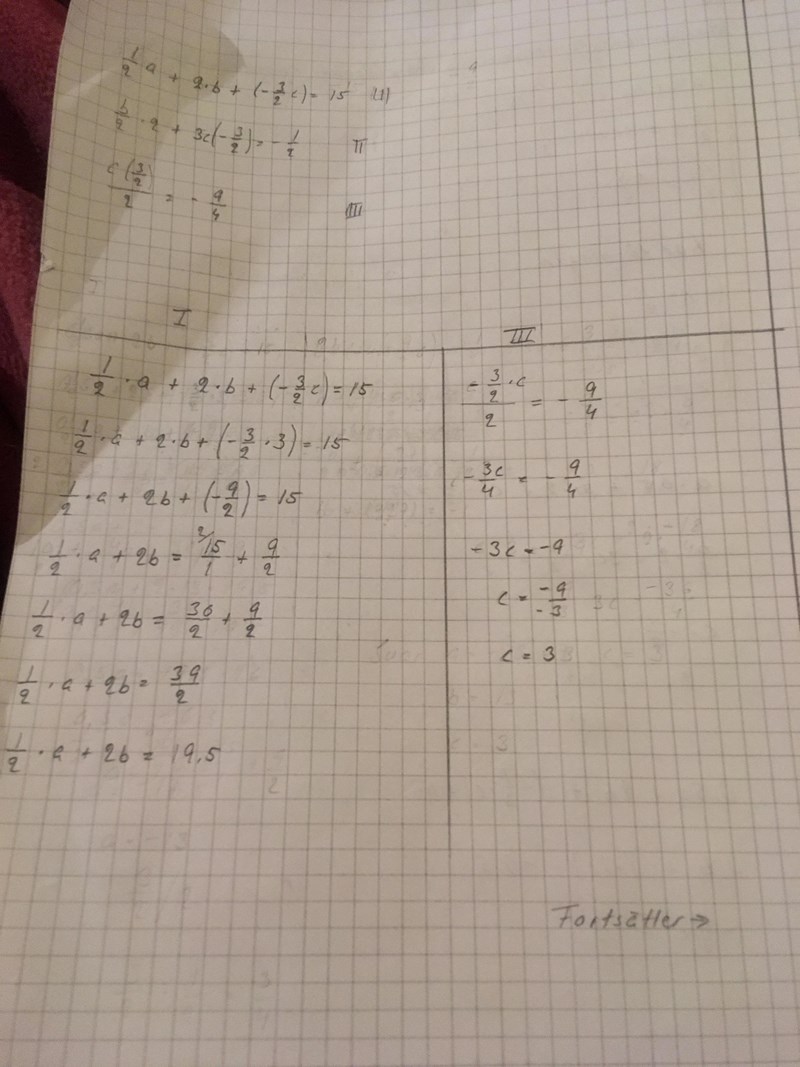 1/2 a + 2·b + (-3/2 c) = 15 (I)
b/2 · 2 + 3c(-3/2) = -1/2 II
c(3/2)/2 = -9/4 III
I
1/2 · a + 2·b + (-3/2 c) = 15
1/2 · a + 2·b + (-3/2 · 3) = 15
1/2 · a + 2b + (-9/2) = 15
1/2 · a + 2b = 2/15/1 + 9/2
1/2 · a + 2b = 30/2 + 9/2
1/2 · a + 2b = 39/2
1/2 · a + 2b = 19,5
III
-3/2 · c/2 = -9/4
-3c/4 = -9/4
-3c = -9
c = -9/-3
c = 3
Fortsätter →